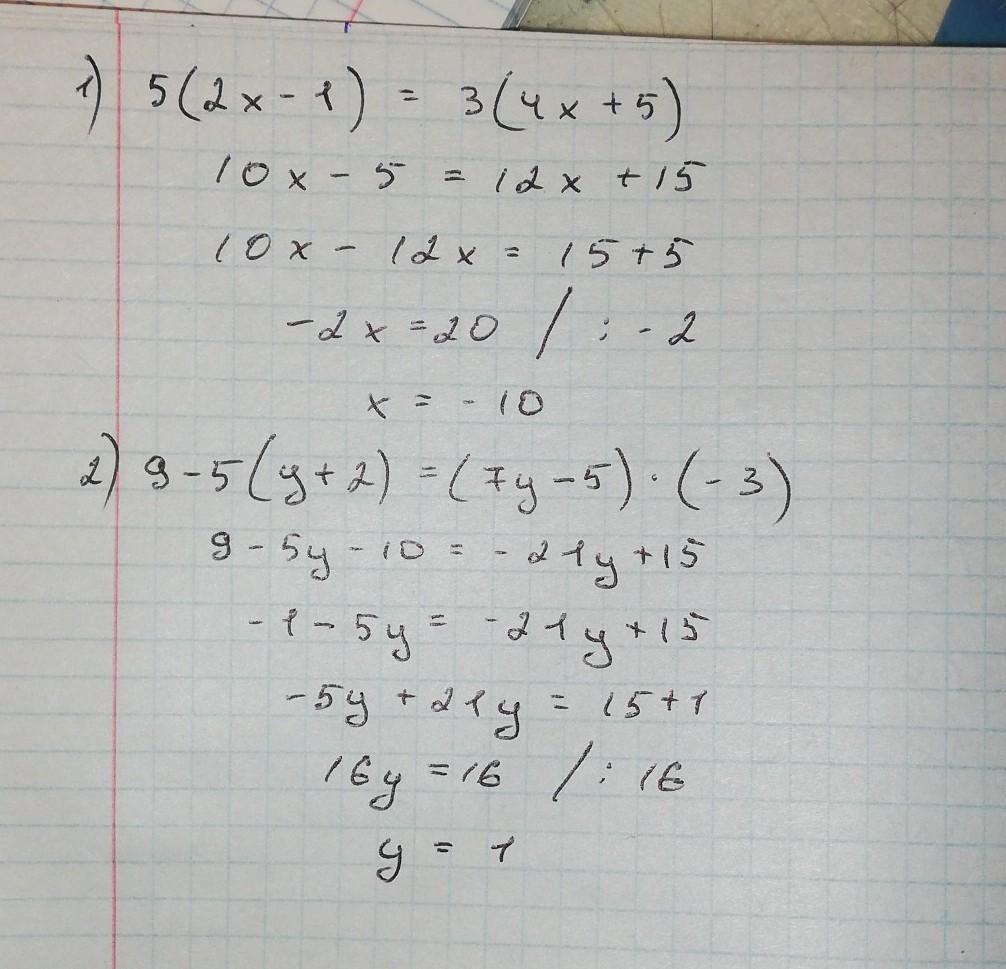 1) 5(2x - 1) = 3(4x + 5)
10x - 5 = 12x + 15
10x - 12x = 15 + 5
-2x = 20 / : -2
x = -10
2) 9 - 5(y + 2) = (7y - 5) · (-3)
9 - 5y - 10 = -21y + 15
-1 - 5y = -21y + 15
-5y + 21y = 15 + 1
16y = 16 / : 16
y = 1